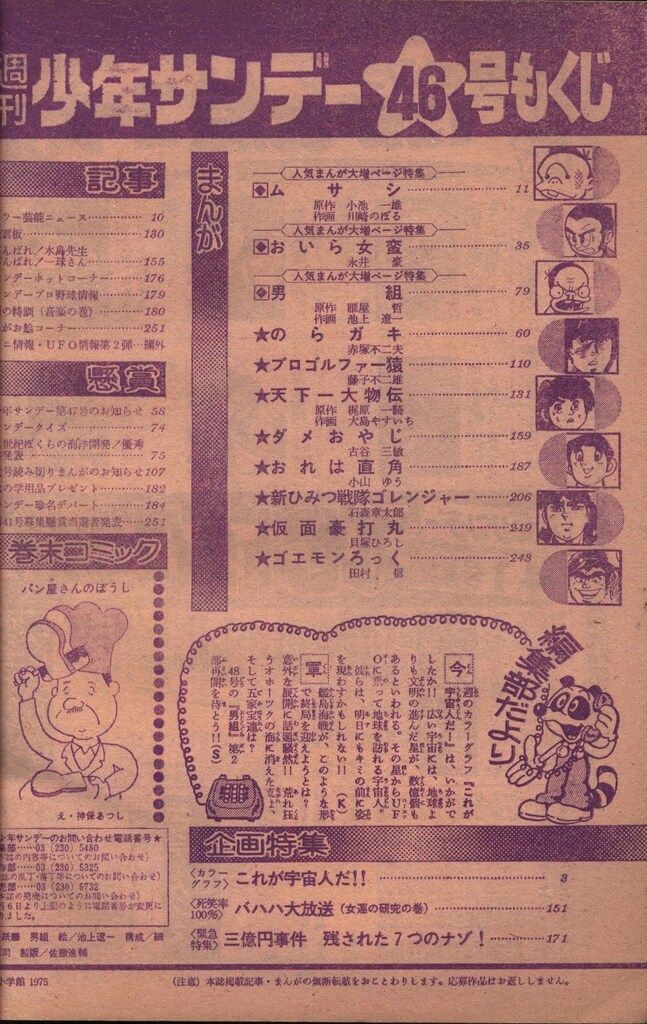 週刊 少年サンデー 46 号もくじ
記事
ラー芸能ニュース 10
電板 130
んばれ!水島先生
んばれ!一球さん 155
ンデーホットコーナー 176
ンデープロ野球情報 179
の特訓(音楽の巻) 180
がお絵コーナー 251
ニ情報・UFO情報第2弾 欄外
懸賞
年サンデー第47号のお知らせ 58
ンデークイズ 74
世紀ぼくらの海洋開発!優秀
発表 75
号読み切りまんがのお知らせ 107
の学用品プレゼント 182
ンデー珍名デパート 184
41号募集懸賞当選者発表 251
巻末コミック
パン屋さんのぼうし
え・神保あつし
まんが
人気まんが大増ページ特集
ムサシ 11
原作 小池一雄
作画 川崎のぼる
人気まんが大増ページ特集
おいら女蛮 35
永井 豪
人気まんが大増ページ特集
男組 79
原作 雁屋 哲
作画 池上遼一
★のらガキ 60
赤塚不二夫
★プロゴルファー猿 110
藤子不二雄
★天下一大物伝 131
原作 梶原一騎
作画 大島やすいち
★ダメおやじ 159
古谷三敏
★おれは直角 187
小山ゆう
★新ひみつ戦隊ゴレンジャー 206
石森章太郎
★仮面豪打丸 219
貝塚ひろし
★ゴエモンろっく 243
田村 信
編集部だより
今週のカラーグラフ『これが
宇宙人だ!!』は、いかがで
したか!! 広い宇宙には、地球よ
りも文明の進んだ星が、数億個も
あるといわれる。その星からUF
Oに乗って地球を訪れる宇宙人。
彼らは、明日にもキミの前に姿
を現わすかもしれない!! (K)
軍艦島海戦が、このような形
で終局を迎えようとは?
意外な展開に話題騒然!! 荒れ狂
うオホーツクの海に消えた
そして五家宝連は?
48号の『男組』第2
部再開を待とう!! (S)
企画特集
〈カラーグラフ〉 これが宇宙人だ!! 3
〈死笑率100%〉 バハハ大放送(女運の研究の巻) 151
〈緊急特集〉 三億円事件 残された7つのナゾ! 171
少年サンデーのお問い合わせ電話番号★
集部……03(230)5480
本誌の内容等についてのお問い合わせ)
作部……03(230)5325
本誌の乱丁・落丁等についてのお問い合わせ)
売部……03(230)5732
本誌の発売についてのお問い合わせ)
月6日より上記のように電話番号が変更に
りました。
紙 男組 絵/池上遼一 構成/細
司 製版/佐藤進輔
小学館 1975
(注意) 本誌掲載記事・まんがの無断転載をおことわりします。応募作品はお返ししません。